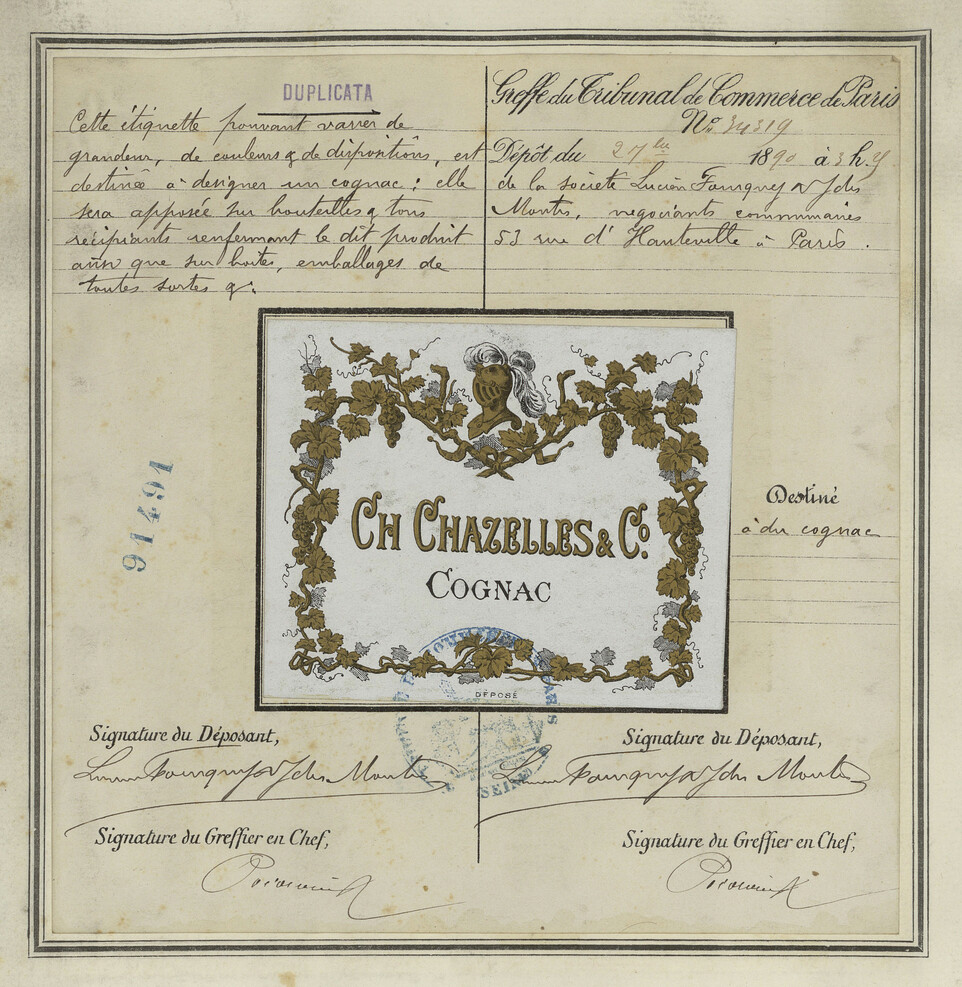 DUPLICATA
Cette étiquette pouvant varier de
grandeur, de couleurs & de dispositions, est
destinée à designer un cognac ; elle
sera apposée sur bouteilles & tous
récipiants renfermant le dit produit
ainsi que sur boites, emballages de
toutes sortes &.
Greffe du Tribunal de Commerce de Paris
No. 34319
Dépôt du 27 1890 à 3 h.
de la société Lucien Fourgney &
Montes, négociants commissionaires
53 rue d'Hauteville à Paris.
91491
CH CHAZELLES & CO.
COGNAC
DÉPOSÉ
SEINE
Destiné
à du cognac
Signature du Déposant,
Signature du Déposant,
Signature du Greffier en Chef,
Signature du Greffier en Chef,